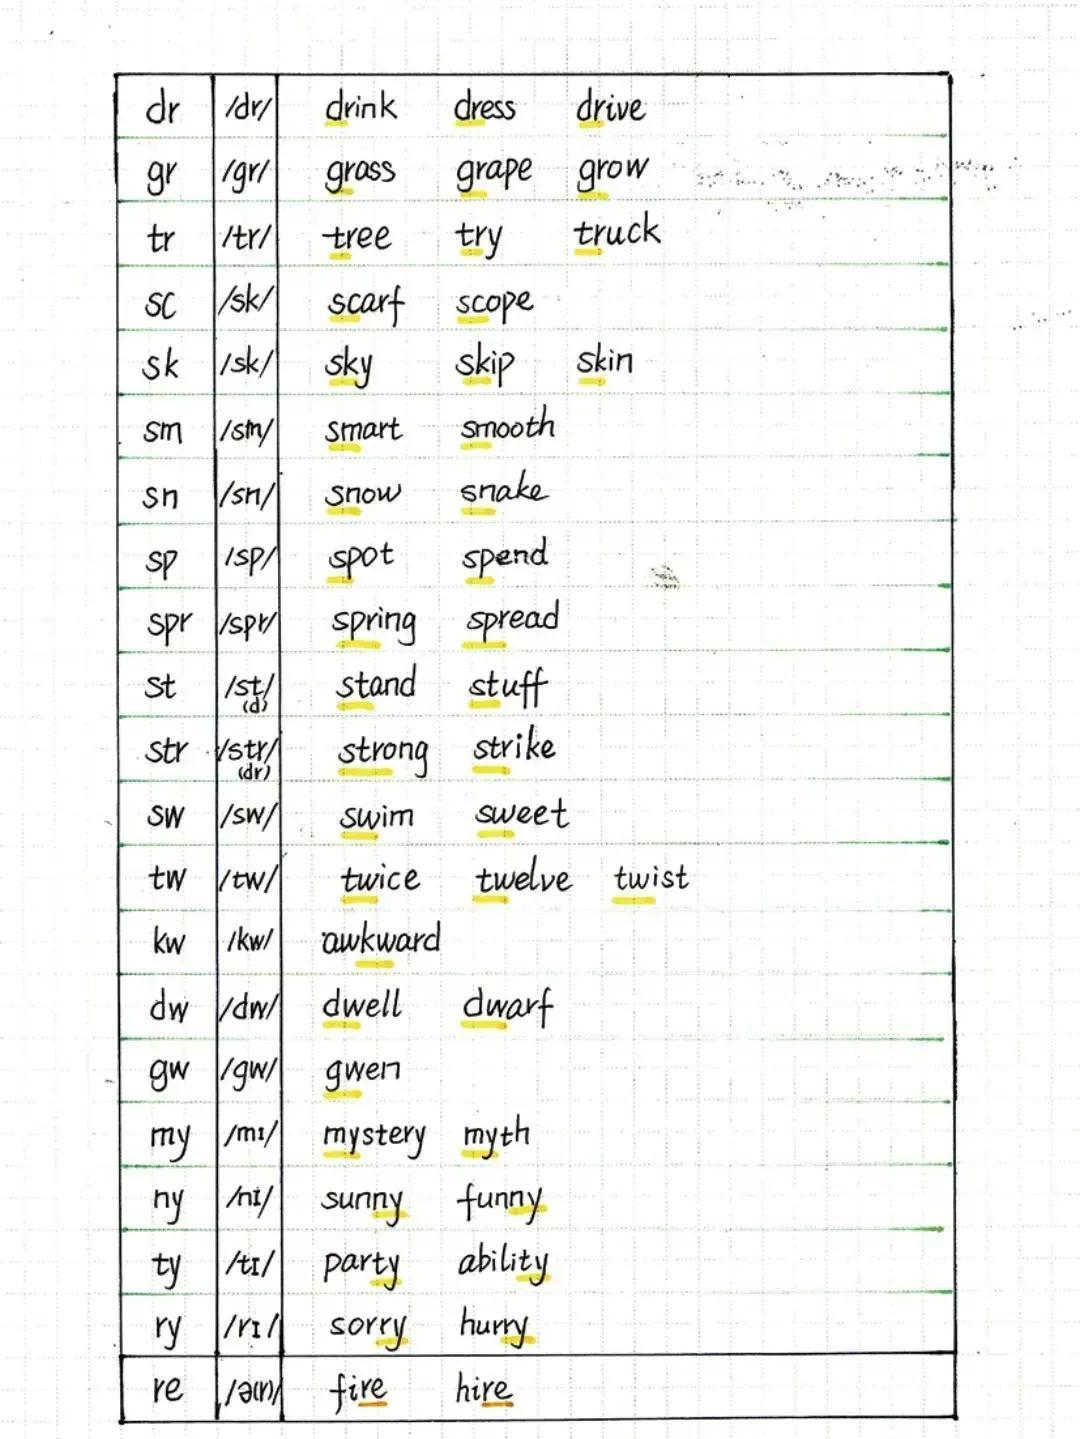 dr /dr/ drink dress drive
gr /gr/ grass grape grow
tr /tr/ tree try truck
sc /sk/ scarf scope
sk /sk/ sky skip skin
sm /sm/ smart smooth
sn /sn/ snow snake
sp /sp/ spot spend
spr /spr/ spring spread
st /st/ stand stuff
(d)
str /str/ strong strike
(dr)
sw /sw/ swim sweet
tw /tw/ twice twelve twist
kw /kw/ awkward
dw /dw/ dwell dwarf
gw /gw/ gwen
my /mɪ/ mystery myth
ny /nɪ/ sunny funny
ty /tɪ/ party ability
ry /rɪ/ sorry hurry
re /ə(r)/ fire hire